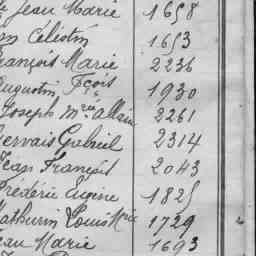 Jean Marie 1658
Célestin 1653
François Marie 2236
Augustin Fçois 1930
Joseph Mrie Allain 2261
Gervais Gabriel 2314
Jean François 2043
Frédéric Eugène 1825
Mathurin Louis Marie 1729
Jean Marie 1693